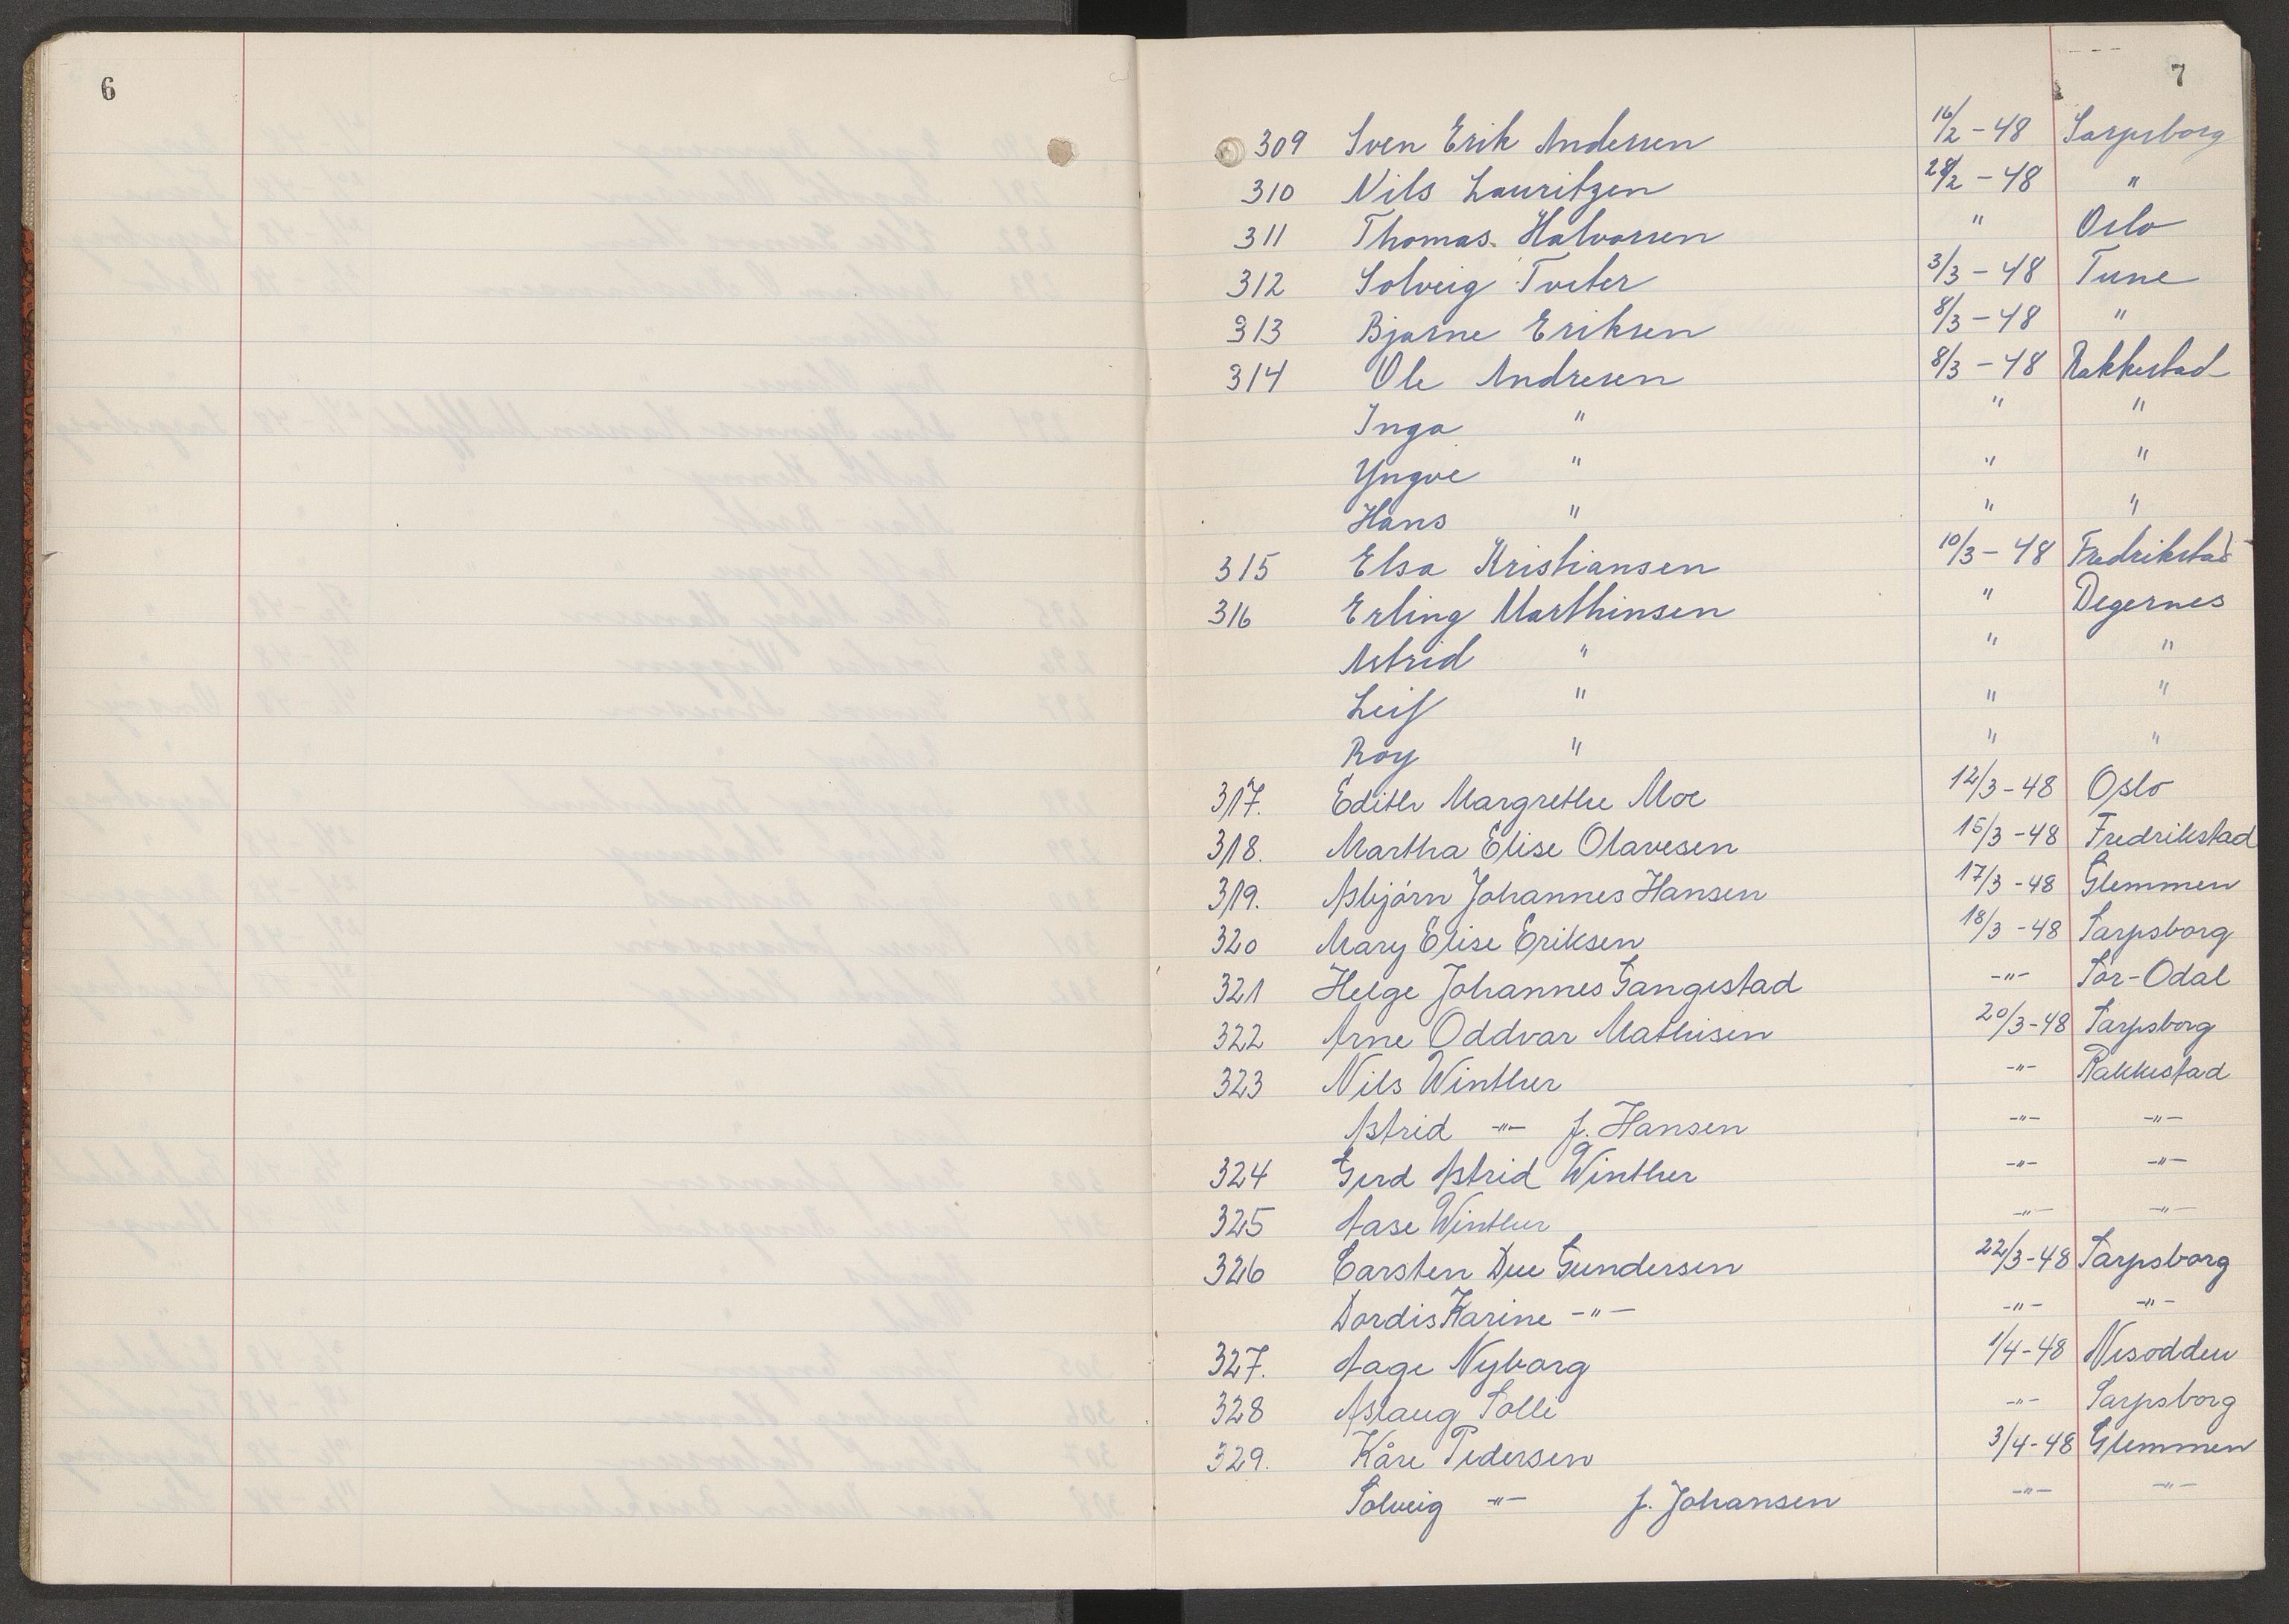 6
7
309 Sven Erik Andersen 16/2-48 Sarpsborg
310 Nils Lauritzen 28/2-48 "
311 Thomas Halvorsen " Oslo
312 Solveig Tveter 3/3-48 Tune
313 Bjarne Eriksen 8/3-48 "
314 Ole Andresen 8/3-48 Rakkestad
Inga " " "
Yngve " " "
Hans " " "
315 Elsa Kristiansen 10/3-48 Fredrikstad
316 Erling Marthinsen " Degernes
Astrid " " "
Leif " " "
Roy " " "
317. Edith Margrethe Moe 12/3-48 Oslo
318. Martha Elise Olavesen 15/3-48 Fredrikstad
319. Asbjörn Johannes Hansen 17/3-48 Glemmen
320 Mary Elise Eriksen 18/3-48 Sarpsborg
321 Helge Johannes Gangestad -"- Sör-Odal
322 Arne Oddvar Mathisen 20/3-48 Sarpsborg
323 Nils Winther -"- Rakkestad
Astrid -"- f. Hansen -"- -"-
324 Gerd Astrid Winther -"- -"-
325 Aase Winther -"- -"-
326 Carsten Due Gundersen 22/3-48 Sarpsborg
Dordis Karine -"- -"- -"-
327. Aage Nyborg 1/4-48 Nesodden
328 Aslaug Solli -"- Sarpsborg
329. Kåre Pedersen 3/4-48 Glemmen
Solveig -"- f. Johansen -"- -"-